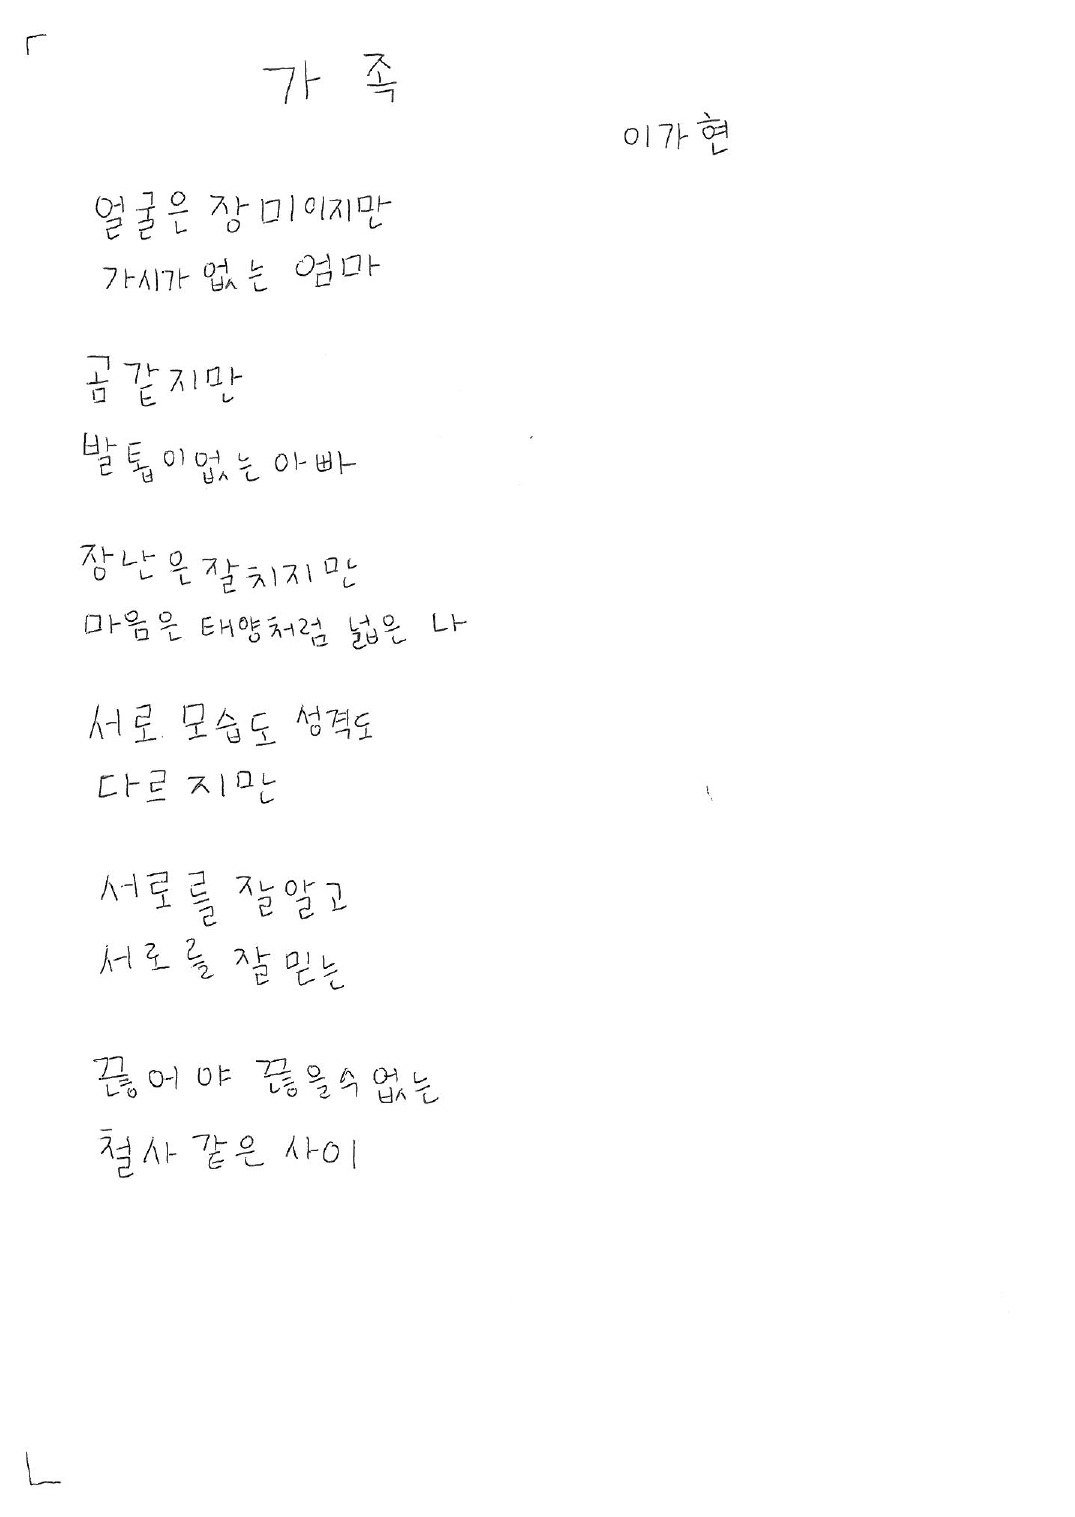 가 족
이가현
얼굴은 장미이지만
가시가 없는 엄마
곰같지만
발톱이없는아빠
장난은잘치지만
마음은 태양처럼 넓은 나
서로 모습도 성격도
다르지만
서로를 잘알고
서로를 잘믿는
끊어야 끊을수없는
철사 같은 사이